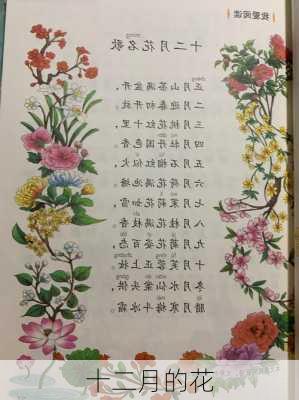 我爱阅读
十二月花名歌
正月山茶满盆开，
二月迎春初开放。
三月桃花红十里，
四月牡丹国色香。
五月石榴红似火，
六月荷花满池塘。
七月茉莉花如雪，
八月桂花满枝香。
九月菊花姿百态，
十月芙蓉正上妆。
冬月水仙案头供，
腊月寒梅斗冰霜。
十二月的花